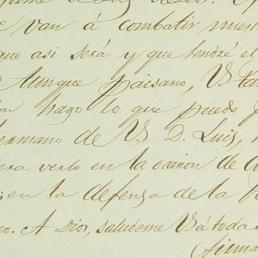 van á combatir
que asi será y que tendré el
Aunque paisano, V. ta
hago lo que puedo
hermano de V. D. Luis,
verlo en la ocasion de
en la defensa de la
A Dios, saludeme V. á toda
firma